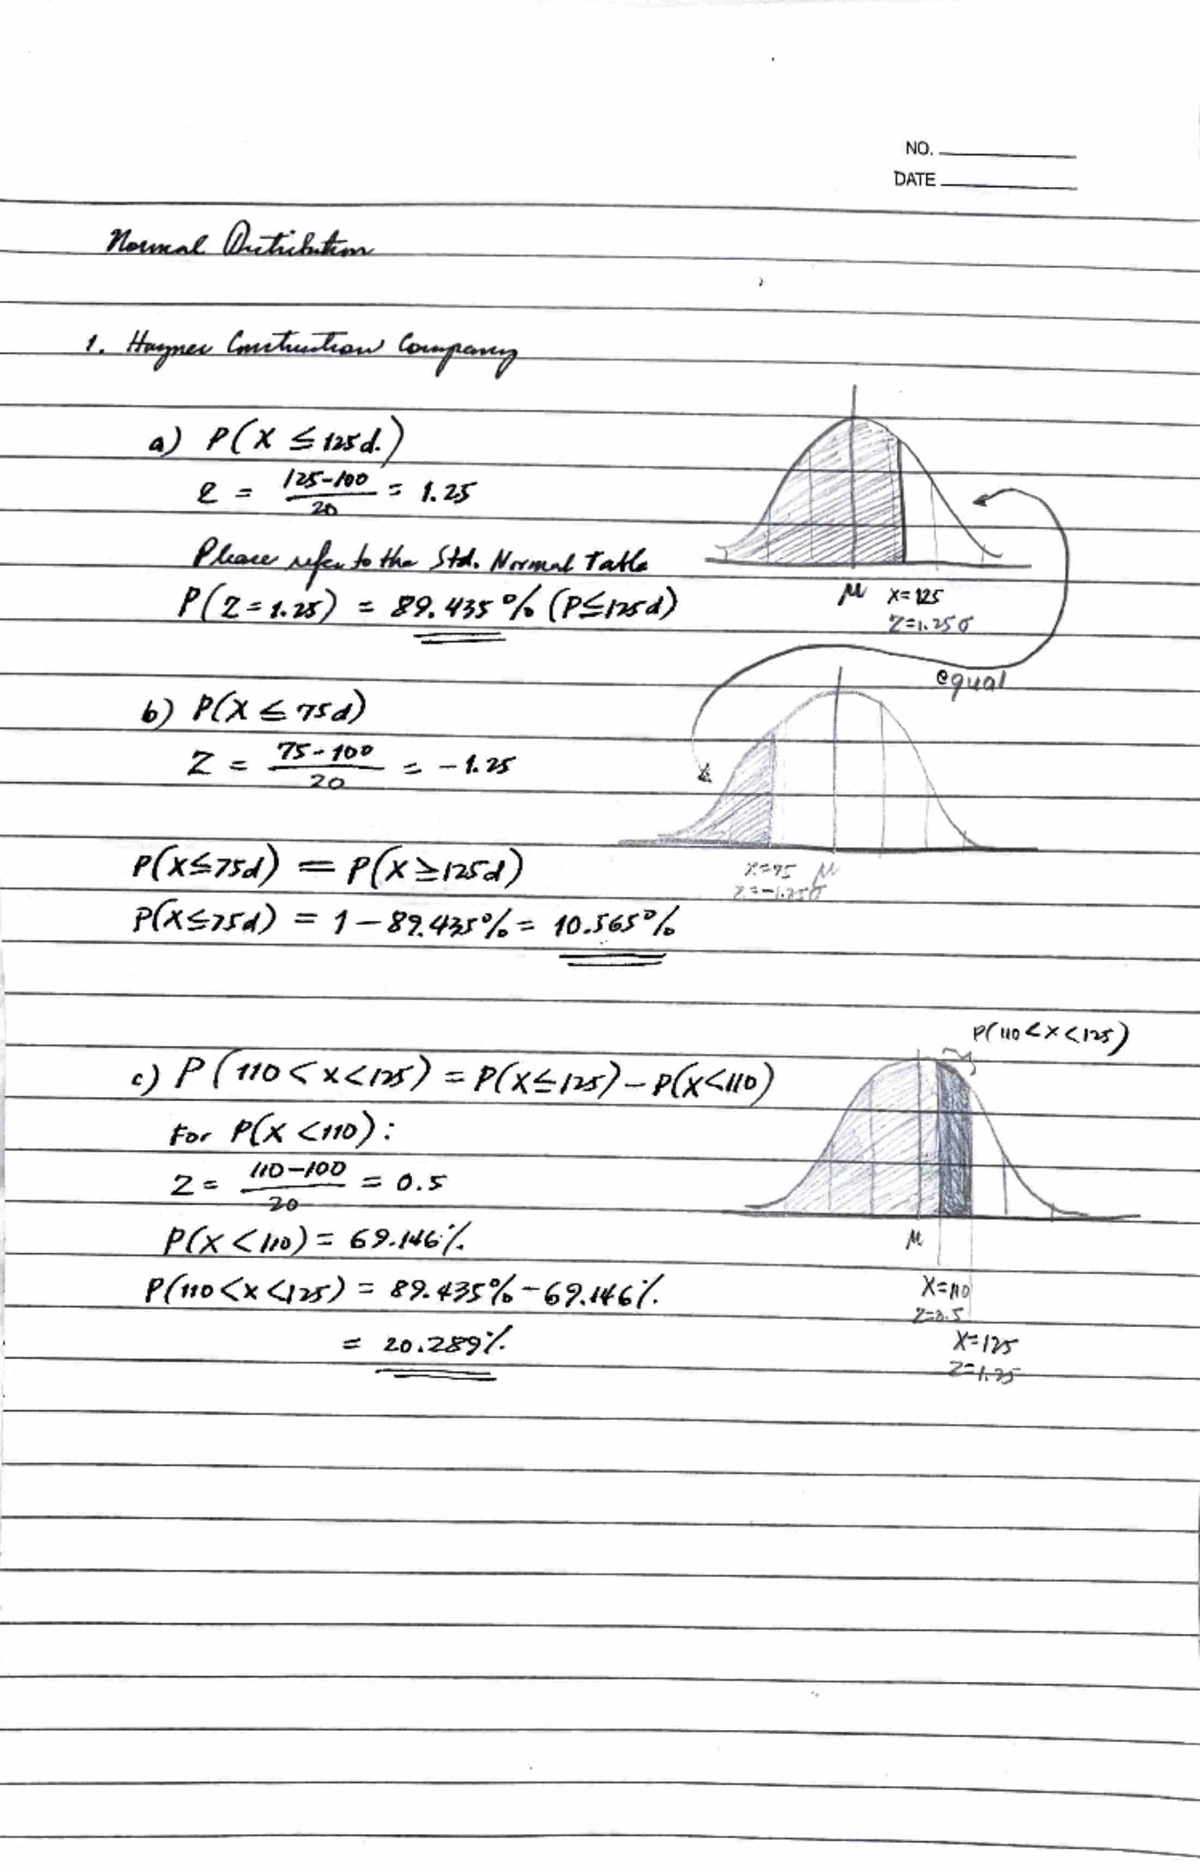 NO.
DATE
Normal Distribution
1. Haynes Construction Company
a) P(X ≤ 125d.)
Z = 125-100 / 20 = 1.25
Please refer to the Std. Normal Table
P(Z=1.25) = 89.435% (P≤125d)
μ X=125
Z=1.25σ
equal
b) P(X ≤ 75d)
Z = 75-100 / 20 = -1.25
P(X≤75d) = P(X≥125d)
X=75 μ
Z=-1.25σ
P(X≤75d) = 1-89.435% = 10.565%
P(110<X<125)
c) P(110<X<125) = P(X≤125)-P(X<110)
For P(X<110):
Z = 110-100 / 20 = 0.5
P(X<110) = 69.146%
μ
P(110<X<125) = 89.435%-69.146%
X=110
Z=0.5
= 20.289%
X=125
Z=1.25